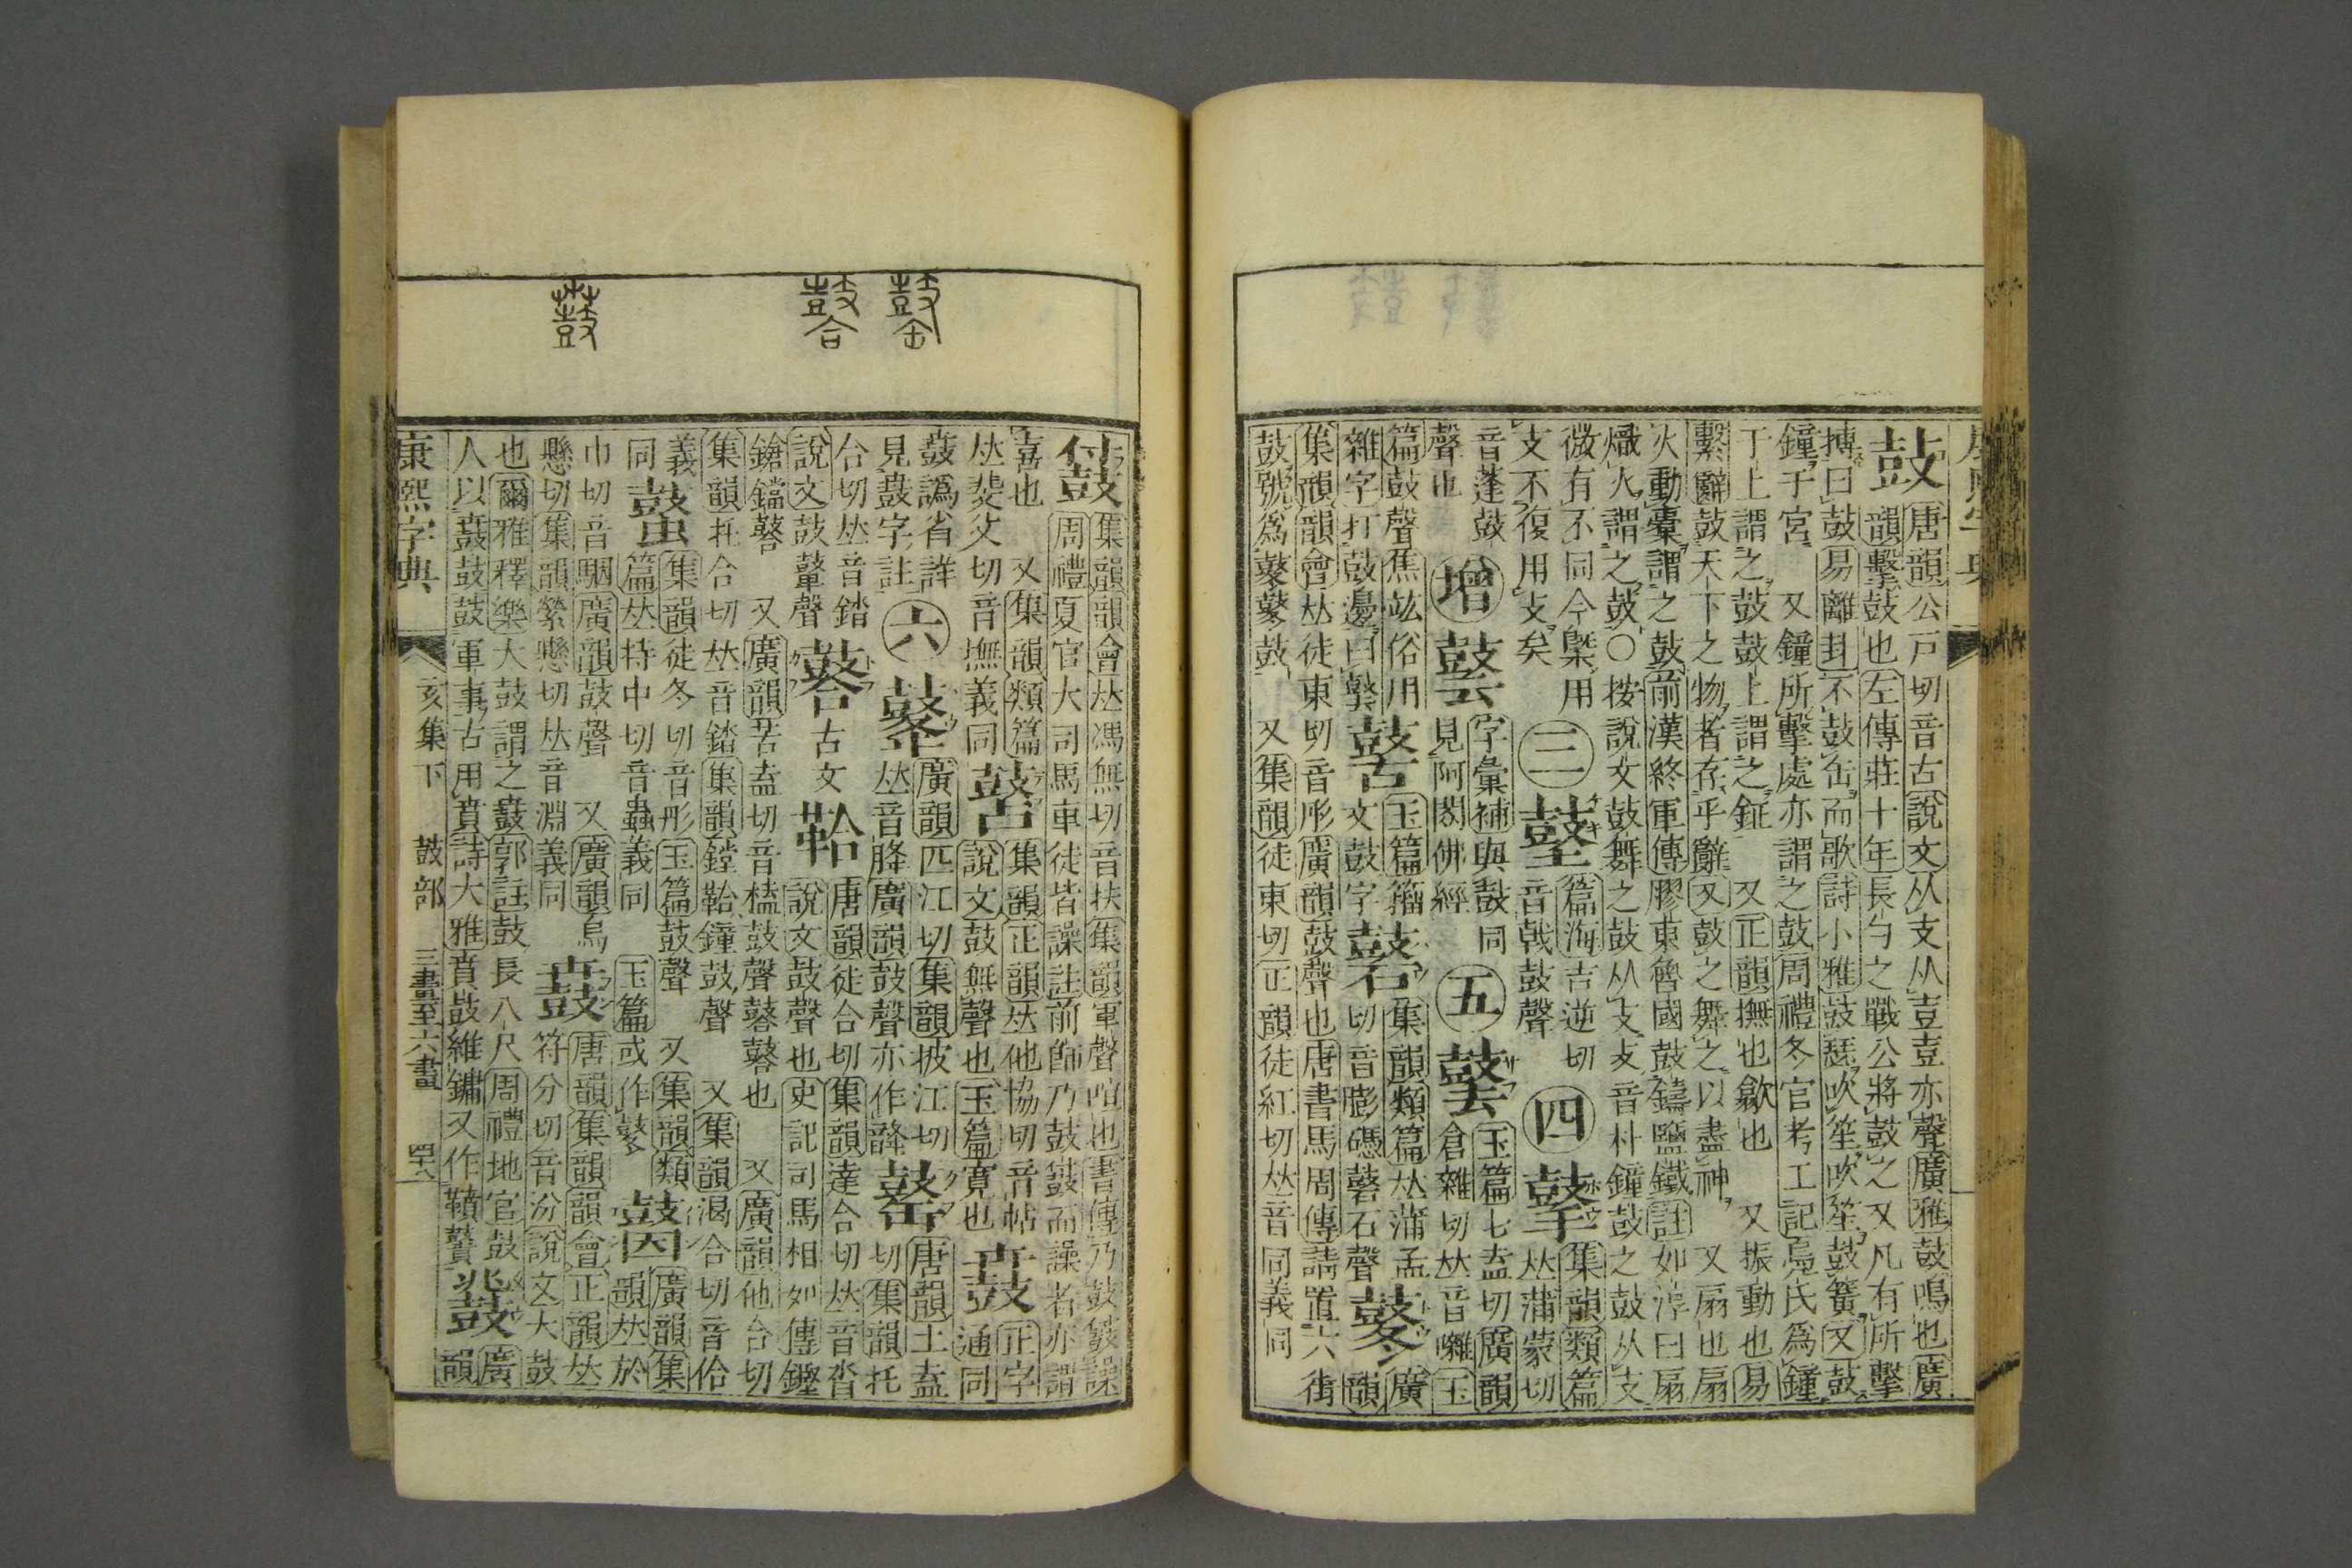 康熙字典
鼓
唐韻公戸切音古說文从支从壴壴亦聲廣雅鼓鳴也廣
韻擊鼓也左傳莊十年長勺之戰公將鼓之又凡有所擊
摶曰鼓易離卦不鼓缶而歌詩小雅鼓瑟吹笙吹笙鼓簧又鼓
鐘于宮又鐘所擊處亦謂之鼓周禮冬官考工記鳧氏爲鐘
于上謂之鼓鼓上謂之鉦又正韻撫也歙也又振動也易
繫辭鼓天下之物者存乎辭又鼓之舞之以盡神又扇也扇
火動橐謂之鼓前漢終軍傳膠東魯國鼓鑄鹽鐵註如淳曰扇
熾火謂之鼓○按說文鼓舞之鼓从攴攴音朴鐘鼓之鼓从支
微有不同今槩用
攴不復用攴矣
三
篇海吉逆切
音戟鼓聲
四
集韻類篇
𠀤蒲蒙切
音蓬鼓
聲也
增
字彙補與鼓同
見阿閦佛經
五
玉篇七盍切廣韻
倉雜切𠀤音囃玉
篇鼓聲焦竑俗用
雜字打鼓邊曰
玉篇籀
文鼓字
集韻類篇𠀤蒲孟
切音膨䃘石聲
鼕
廣
韻
集韻韻會𠀤徒東切音彤廣韻鼓聲也唐書馬周傳請置六街
鼓號爲鼕鼕鼓又集韻徒東切正韻徒紅切𠀤音同義同
集韻韻會𠀤馮無切音扶集韻軍聲喧也書傳乃鼓譟
周禮夏官大司馬車徒皆譟註前師乃鼓而譟者亦謂
喜也又集韻類篇
𠀤斐父切音撫義同
鼛
集韻正韻𠀤他協切音帖
說文鼓無聲也玉篇寬也
鼖
正字
通同
鼖譌省詳
見鼖字註
六
廣韻匹江切集韻披江切
𠀤音胮廣韻鼓聲亦作
唐韻土盍
切集韻托
合切𠀤音錔
說文鼓鼙聲
古文
鞈
唐韻徒合切集韻達合切𠀤音沓
說文鼓聲也史記司馬相如傳鏗
鎗鐺鼛又廣韻苦盍切音榼鼓聲也又廣韻他合切
集韻托合切𠀤音錔集韻鏜鞈鐘鼓聲又集韻渴合切音佮
義
同
集韻徒冬切音彤玉篇鼓聲又集韻類
篇𠀤持中切音蟲義同玉篇或作鼕
廣韻集
韻𠀤於
巾切音駰廣韻鼓聲又廣韻烏
懸切集韻縈懸切𠀤音淵義同
鼖
唐韻集韻韻會正韻𠀤
符分切音汾說文大鼓
也爾雅釋樂大鼓謂之鼖郭註鼓長八尺周禮地官鼓
人以鼖鼓鼓軍事古用賁詩大雅賁鼓維鏞又作韇
鼗
廣
韻
康熙字典
亥集下
鼓部
三畫至六畫